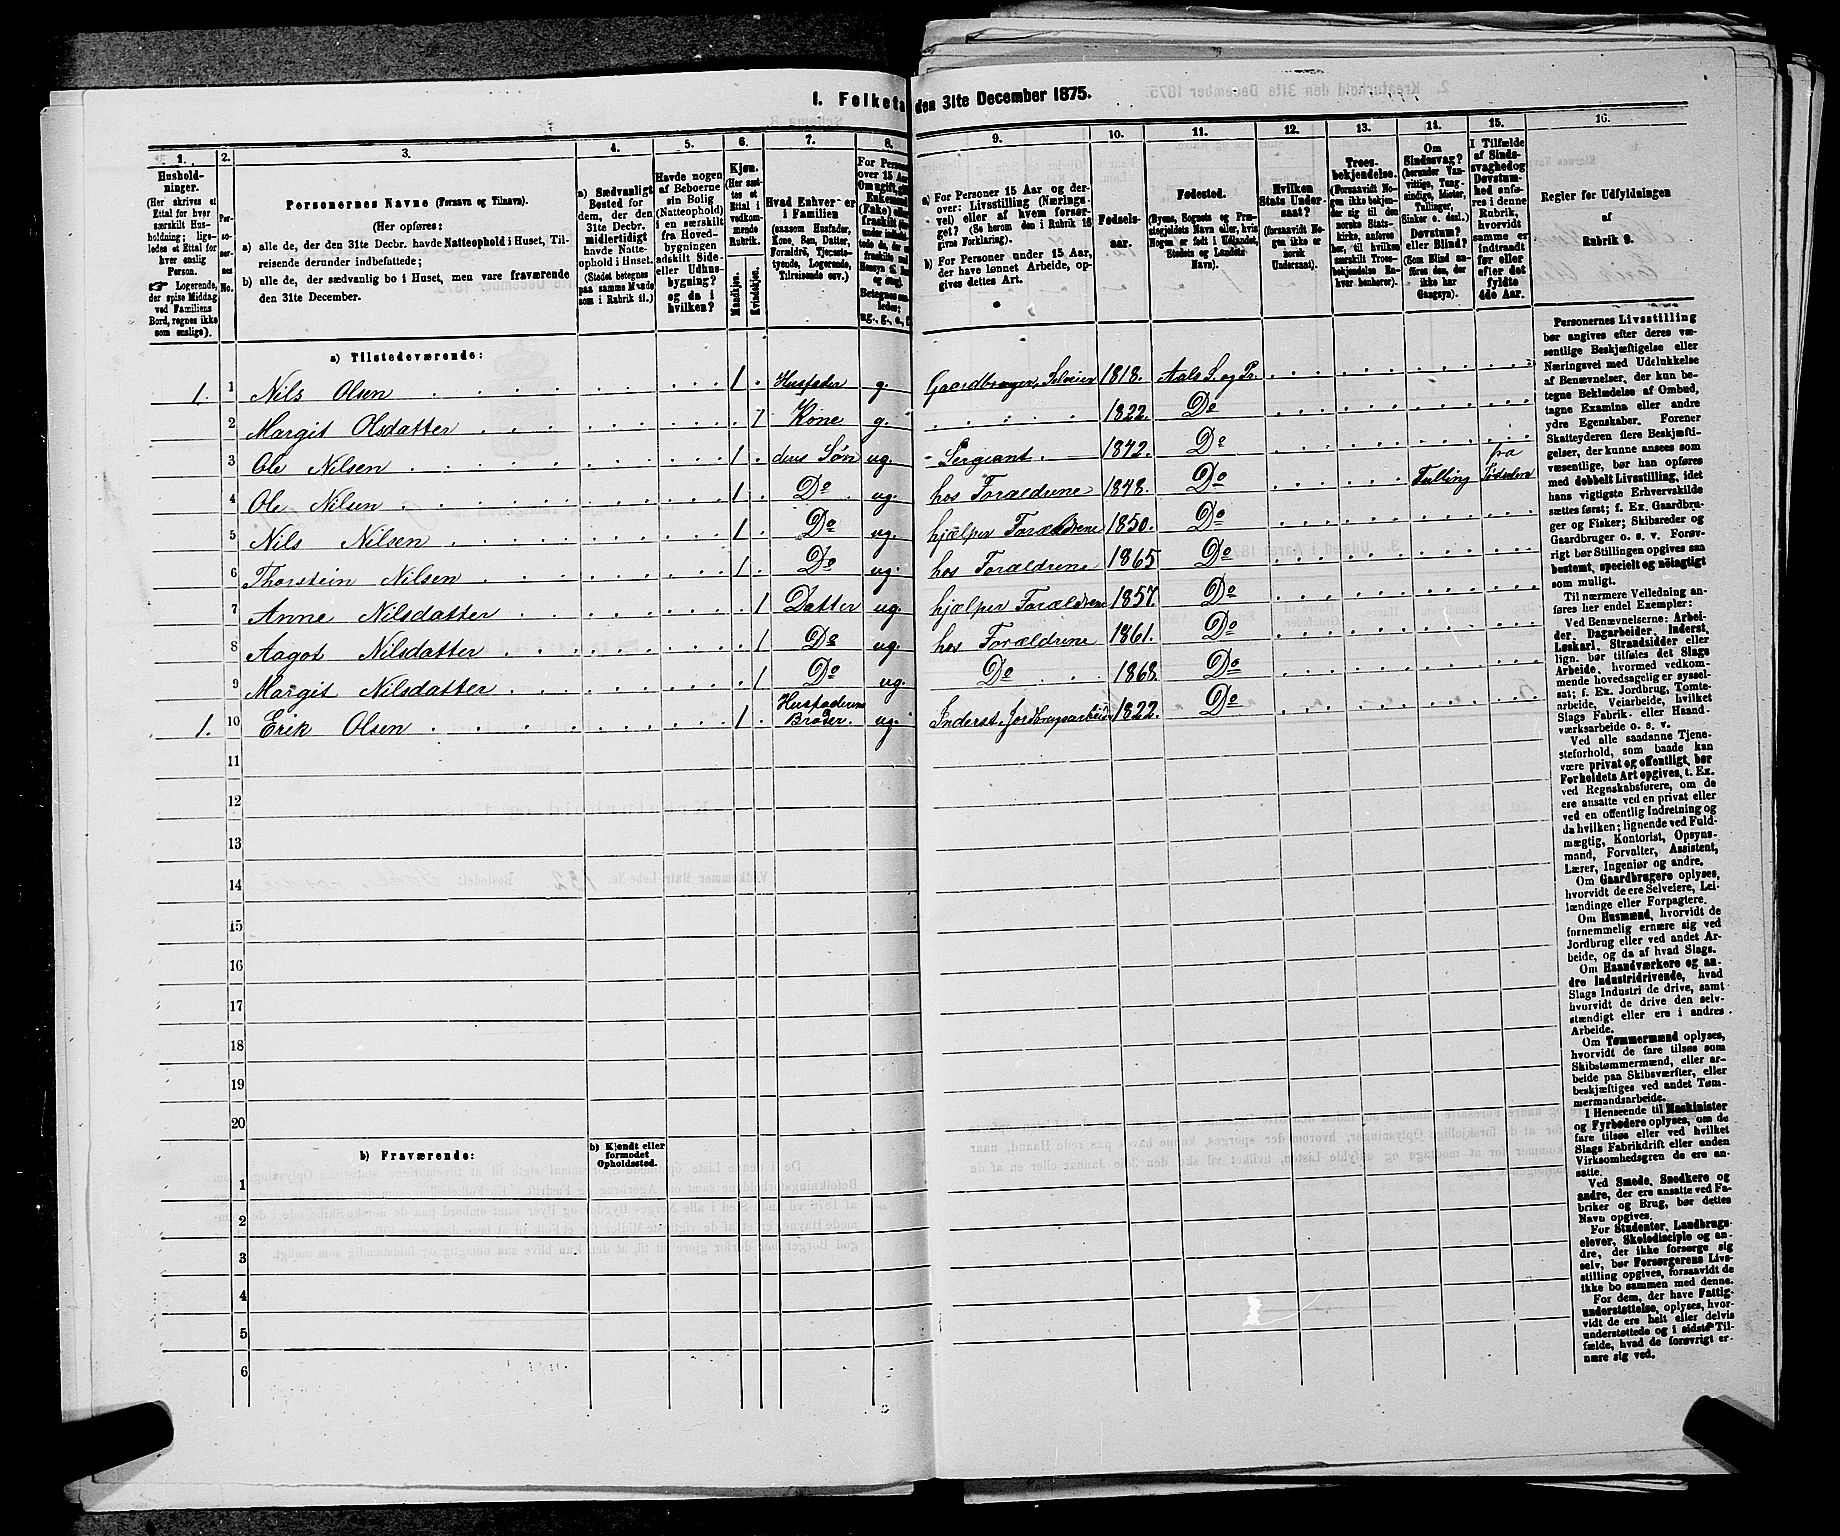 1. Folketa
den 31te December 1875.
1.
2.
3.
4.
5.
6.
7.
8.
9.
10.
11.
12.
13.
14.
15.
16.
Hushold-
ninger.
(Her skrives et
Ettal for hver
særskilt Hus-
holdning; lige-
ledes et Ettal for
hver enslig
Person.
☛ Logerende,
der spise Middag
ved Familiens
Bord, regnes ikke
som enslige).
Per-
so-
ner-
nes
No.
Personernes Navne (Fornavn og Tilnavn).
(Her opføres:
a) alle de, der den 31te Decbr. havde Natteophold i Huset, Til-
reisende derunder indbefattede;
b) alle de, der sædvanlig bo i Huset, men vare fraværende
den 31te December.
a) Sædvanligt
Bosted for
dem, der den
31te Decbr.
midlertidigt
havde Natte-
ophold i Huset.
(Stedet betegnes
paa samme Maade
som i Rubrik 11.)
Havde nogen
af Beboerne
sin Bolig
(Natteophold)
i en særskilt
fra Hoved-
bygningen
adskilt Side-
eller Udhus-
bygning?
og da i
hvilken?
Kjøn.
(Her sæt-
tes et
Ettal i
vedkom-
mende
Rubrik.
Mandkjøn.
Kvindekjøn.
Hvad Enhver er
i Familien
(saasom Husfader,
Kone, Søn, Datter,
Forældre, Tjenesta-
tyende, Logerende,
Tilreisende osv.)
a) For Personer 15 Aar og der-
over: Livsstilling (Nærings-
vei) eller af hvem forsør-
get? (Se herom den i Rubrik 16
givne Forklaring).
b) For Personer under 15 Aar,
der have lønnet Arbeide, op-
gives dettes Art.
Fødsels-
aar.
Fødested.
(Byens, Sognets og Præ-
stegjeldets Navn eller, hvis
Nogen er født i Udlandet,
Stedets og Landets
Navn).
Hvilken
Stats Under-
saat?
(forsaavidt No-
gen ikke er
norsk
Undersaat).
Troes-
bekjendelse.
(Forsaavidt No-
gen ikke bekjen-
der sig til den
norske Stats-
kirke, anføres
her, til hvilken
særskilt Troes-
bekjendelse Ha-
hver henhører).
Om
Sindssvag?
(herunder Van-
vittige, Tung-
sindige, Idioter,
Tullinger,
Sinker o. desl.)
Døvstum?
eller Blind?
(Som Blind an-
føres den, der
ikke har
Gangsyn).
I Tilfælde
af Sinds-
svaghed og
Døvstum-
hed anfø-
res i denne
Rubrik,
hvorvidt
samme er
indtraadt
før eller
efter det
fyldte
4de Aar.
Regler for Udfyldningen
af
Rubrik 9.
a) Tilstedeværende:
1. 1 Nils Olsen 1 Husfader g. Gaardbruger, Selveier 1818. Aals S. og Pr.
2 Margit Olsdatter 1 Kone g. 1822. Do
3 Ole Nilsen 1 deres Søn ug. Sergeant 1842. Do
4 Ole Nilsen 1 Do ug. hos Forældrene 1848. Do Tulling fra Fødselen
5 Nils Nilsen 1 Do ug. hjælper Forældrene 1850. Do
6 Thorstein Nilsen 1 Do ug. hos Forældrene 1865 Do
7 Anne Nilsdatter 1 Datter ug. hjælper Forældrene 1857. Do
8 Aagot Nilsdatter 1 Do ug. hos Forældrene 1861. Do
9 Margit Nilsdatter 1 Do ug. Do 1868. Do
1. 10 Erik Olsen 1 Husfaderens Broder. ug. Inderst, Jordbrugsarbeide 1822. Do
11
12
13
14
15
16
17
18
19
20
b) Fraværende:
b) Kjendt eller
formodet
Opholdssted.
1
2
3
4
5
6
Personernes Livsstilling
bør angives efter deres væ-
sentlige Beskjæftigelse eller
Næringsvei med Udelukkelse
af Benævnelser, der kun be-
tegne Beklædelse af Ombud,
tagne Examina eller andre
ydre Egenskaber. Forener
Skatteyderen flere Beskjæfti-
gelser, der kunne ansees som
væsentlige, bør han opføres
med dobbelt Livsstilling, idet
hans vigtigste Erhvervskilde
sættes først; f. Ex. Gaardbru-
ger og Fisker; Skibsreder og
Gaardbruger o. s. v. Forøv-
rigt bør Stillingen opgives saa
bestemt, specielt og nöiagtigt
som muligt.
Til nærmere Veiledning an-
føres her endel Exempler:
Ved Benævnelserne: Arbei-
der, Dagarbeider, Inderst,
Løskarl, Strandsidder eller
lign. bør tilføies det Slags
Arbeide, hvormed vedkom-
mende hovedsagelig er syssel-
sat; f. Ex. Jordbrug, Tomte-
arbeide, Veiarbeide, hvilket
Slags Fabrik- eller Haand-
værksarbeide o. s. v.
Ved alle saadanne Tjene-
steforhold, som baade kan
være privat og offentligt, bør
Forholdets Art opgives, t. Ex.
ved Regnskabsførere, om de
ere ansatte ved en privat eller
ved en offentlig Indretning og
da hvilken; lignende ved Fuld-
mægtig, Kontorist, Opsyns-
mand, Forvalter, Assistent,
Lærer, Ingeniør og andre.
Om Gaardbrugere oplyses,
hvorvidt de ere Selveiere, Lei-
lændinge eller Forpagtere.
Om Husmænd, hvorvidt de
fornemmelig ernære sig ved
Jordbrug eller ved andet Ar-
beide, og da af hvad Slags.
Om Haandværkere og an-
dre Industridrivende, hvad
Slags Industri de drive, samt
hvorvidt de drive den selv-
stændigt eller ere i andres
Arbeide.
Om Tømmermænd oplyses,
hvorvidt de fare tilsøs som
Skibstømmermænd, eller ar-
beide paa Skibsværfter, eller
beskjæftiges ved andet Tøm-
mermandsarbeide.
I Henseende til Maskinister
og Fyrbødere oplyses, om de
fare tilsøs eller ved hvilket
Slags Fabrikdrift eller anden
Virksomhedsgren de ere an-
satte.
Ved Smede, Snedkere og
andre, der ere ansatte ved Fa-
briker og Brug, bør dettes
Navn opgives.
For Studenter, Landbrugs-
elever, Skoledisciple og an-
dre, der ikke forsørge sig
selv, bør Forsørgerens Livs-
stilling opgives, forsaavidt de
ikke bo sammen med denne.
For dem, der have Fattig-
understøttelse, oplyses, hvor-
vidt de ere helt eller delvis
understøttede og i sidste Til-
fælde, hvad de forøvrigt er-
nære sig ved.